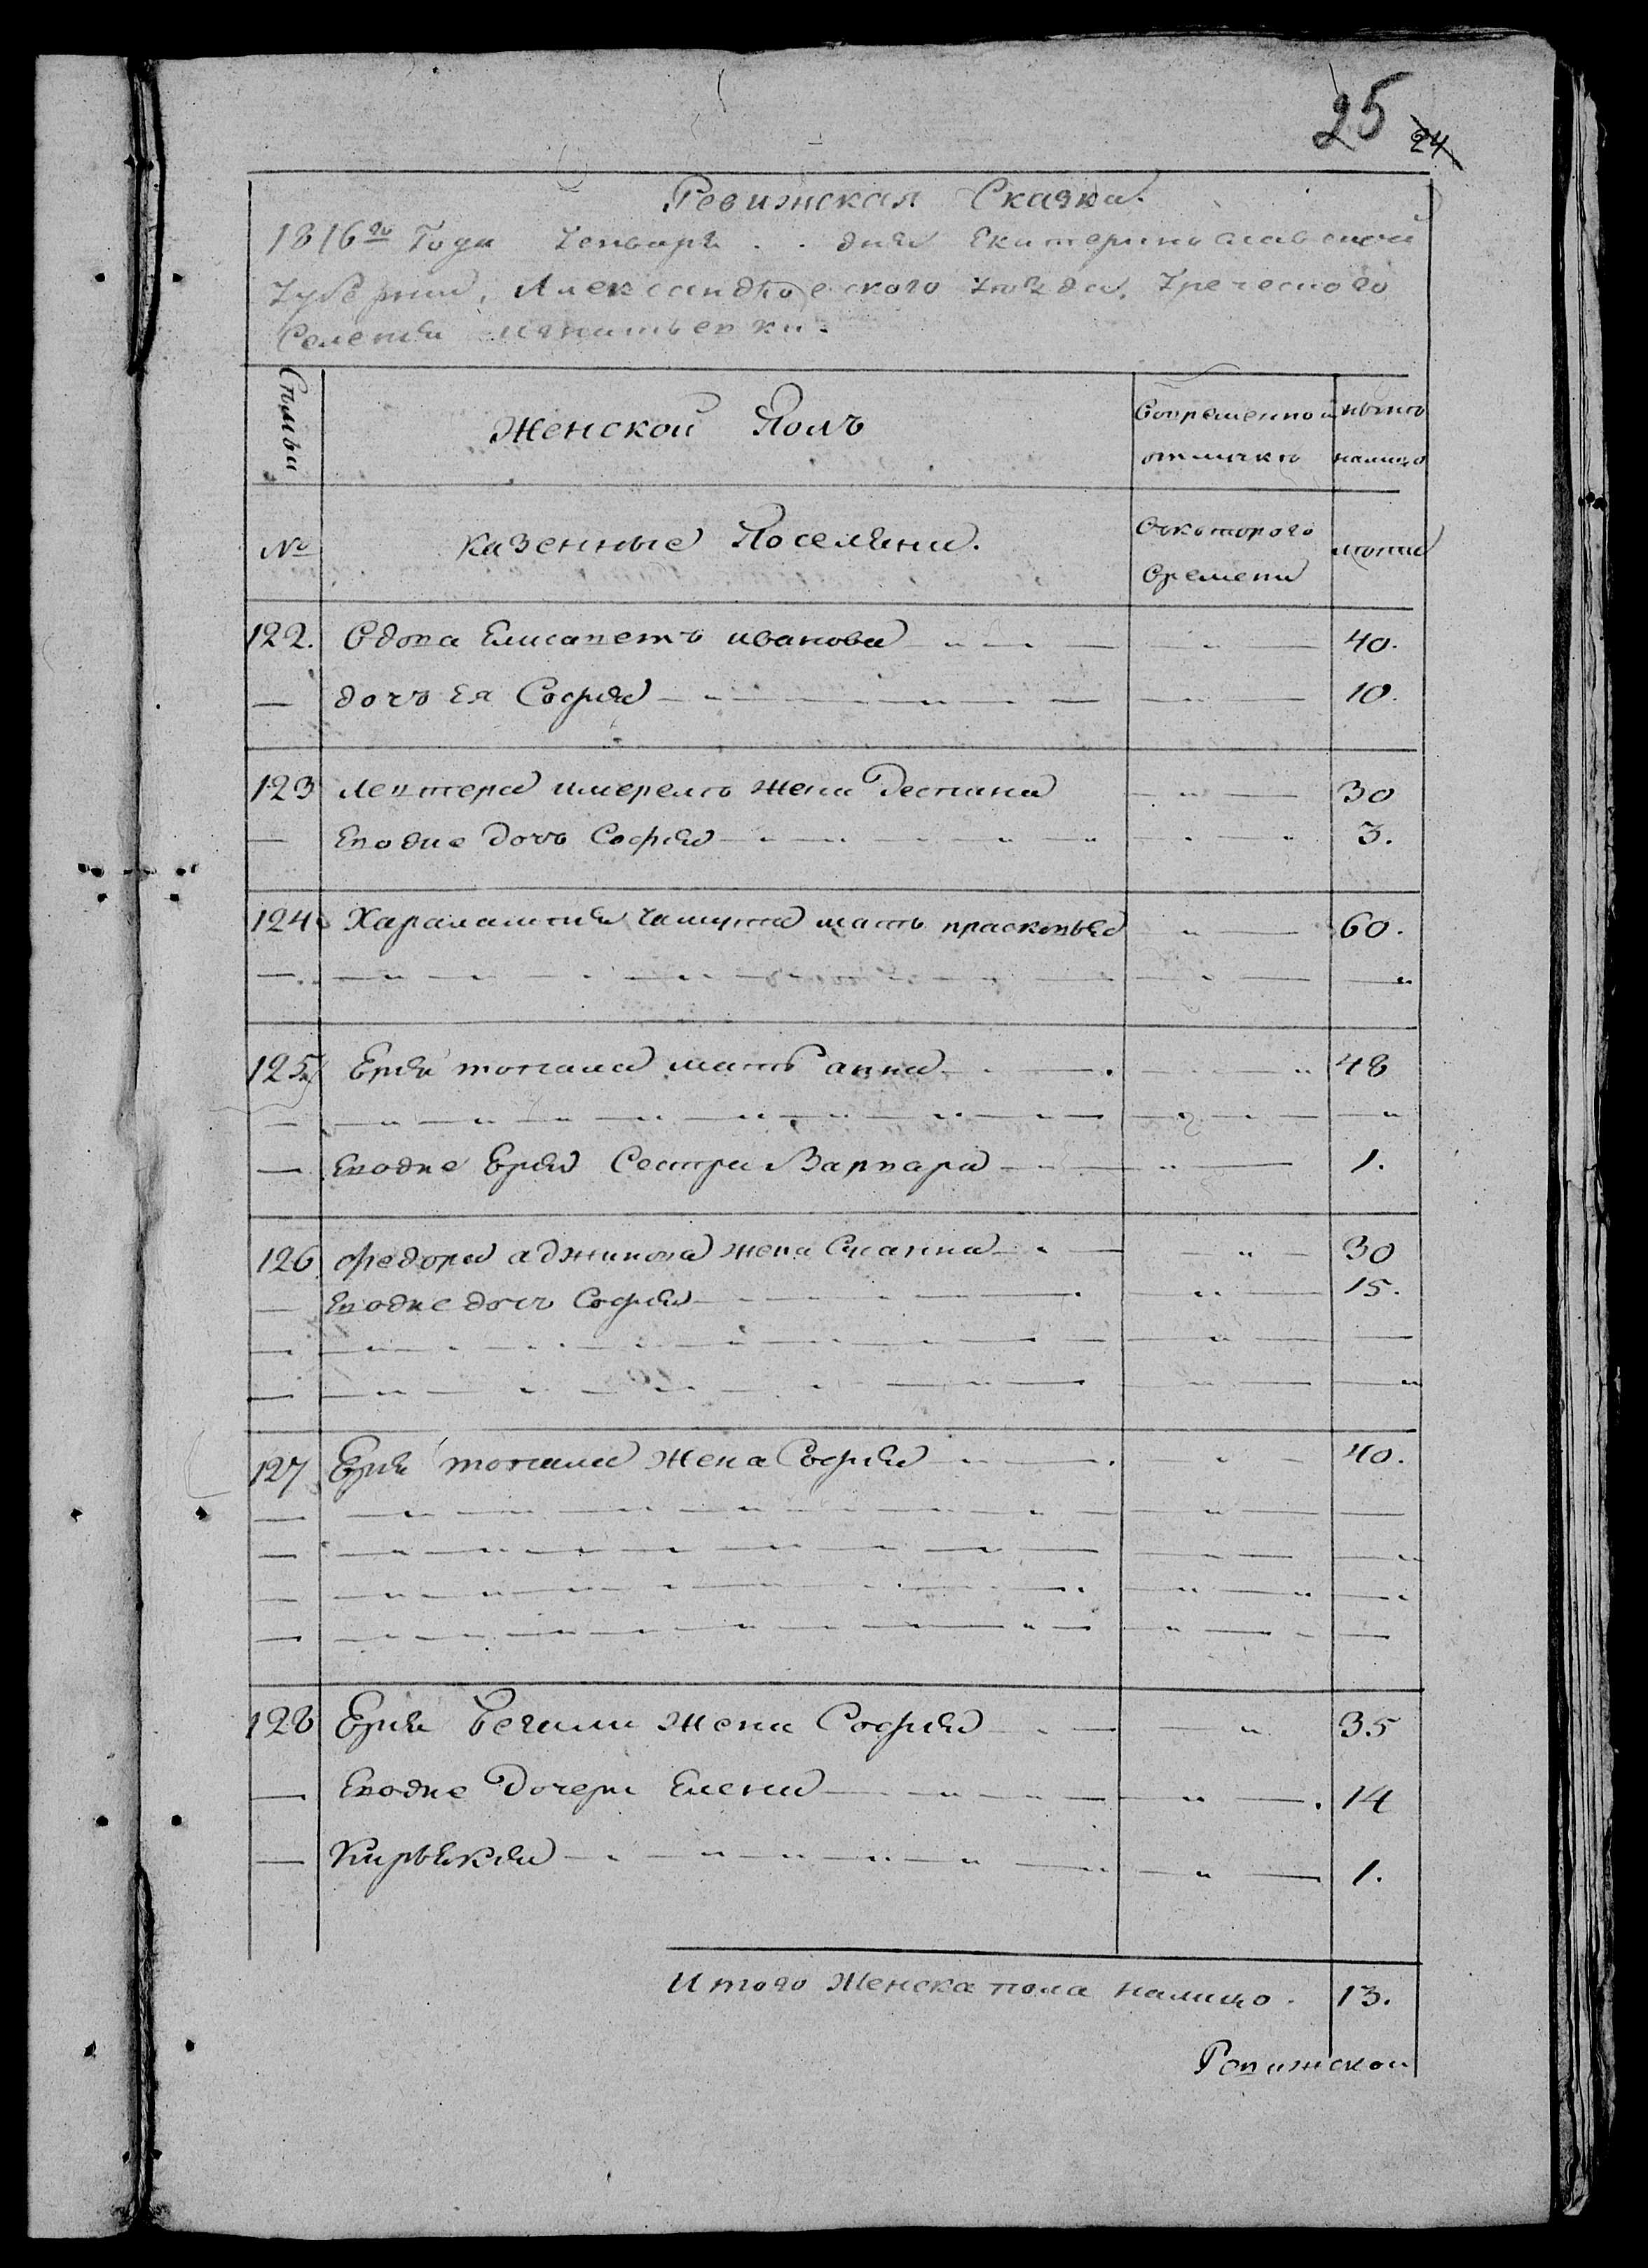 25 24
Ревижская Сказка.
1816го Года Генваря . . дня Екатеринославской
Губернии, Александровского уезда, Греческого
Селения Игнатьевки.
Семьи
Женской Полъ
Вовременной
отлучке
ныне
налицо
№
казенные Поселяни.
Съкоторого
Времени
летами
122. Вдова Елисаветъ иванова 40.
— дочь Ея София 10.
123 Лефтера имерелъ жена Деспина 30
— Еводне дочь София 3.
124 Харалампия мать прасковья 60.
125 Ерия топала мать анна 48
— Еводне Ерия Сестра Варвара 1.
126 Федора аджинова жена Сусанна 30
— Еводне дочь София 15.
127 Ерия топала Жена София 40.
128 Ерия Бечали жена София 35
— Еводне Дочери Елена 14
— Кирьякия 1.
Итого Женска пола налицо. 13.
Ревижской